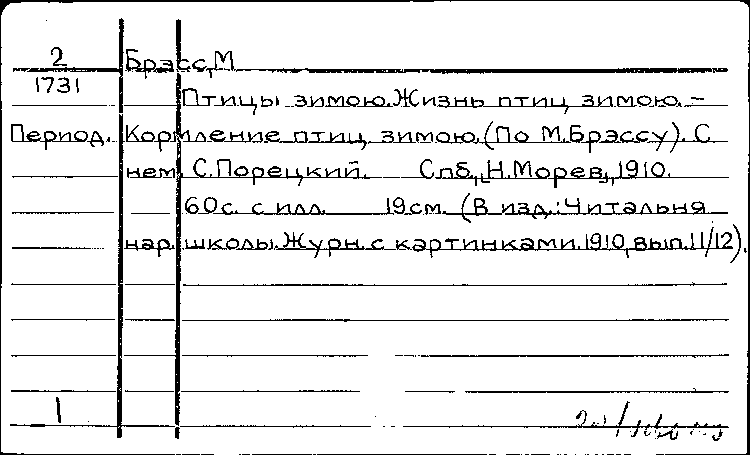 2 Брэсс, М
1731
Птицы зимою. Жизнь птиц зимою. –
Период. Кормление птиц зимою. (По М.Брэссу). С
нем. С.Порецкий. Спб, „Н.Морев", 1910.
60с. с илл. 19см. (В изд.: Читальня
нар. школы. Журн. с картинками. 1910, вып. 11/12).
1